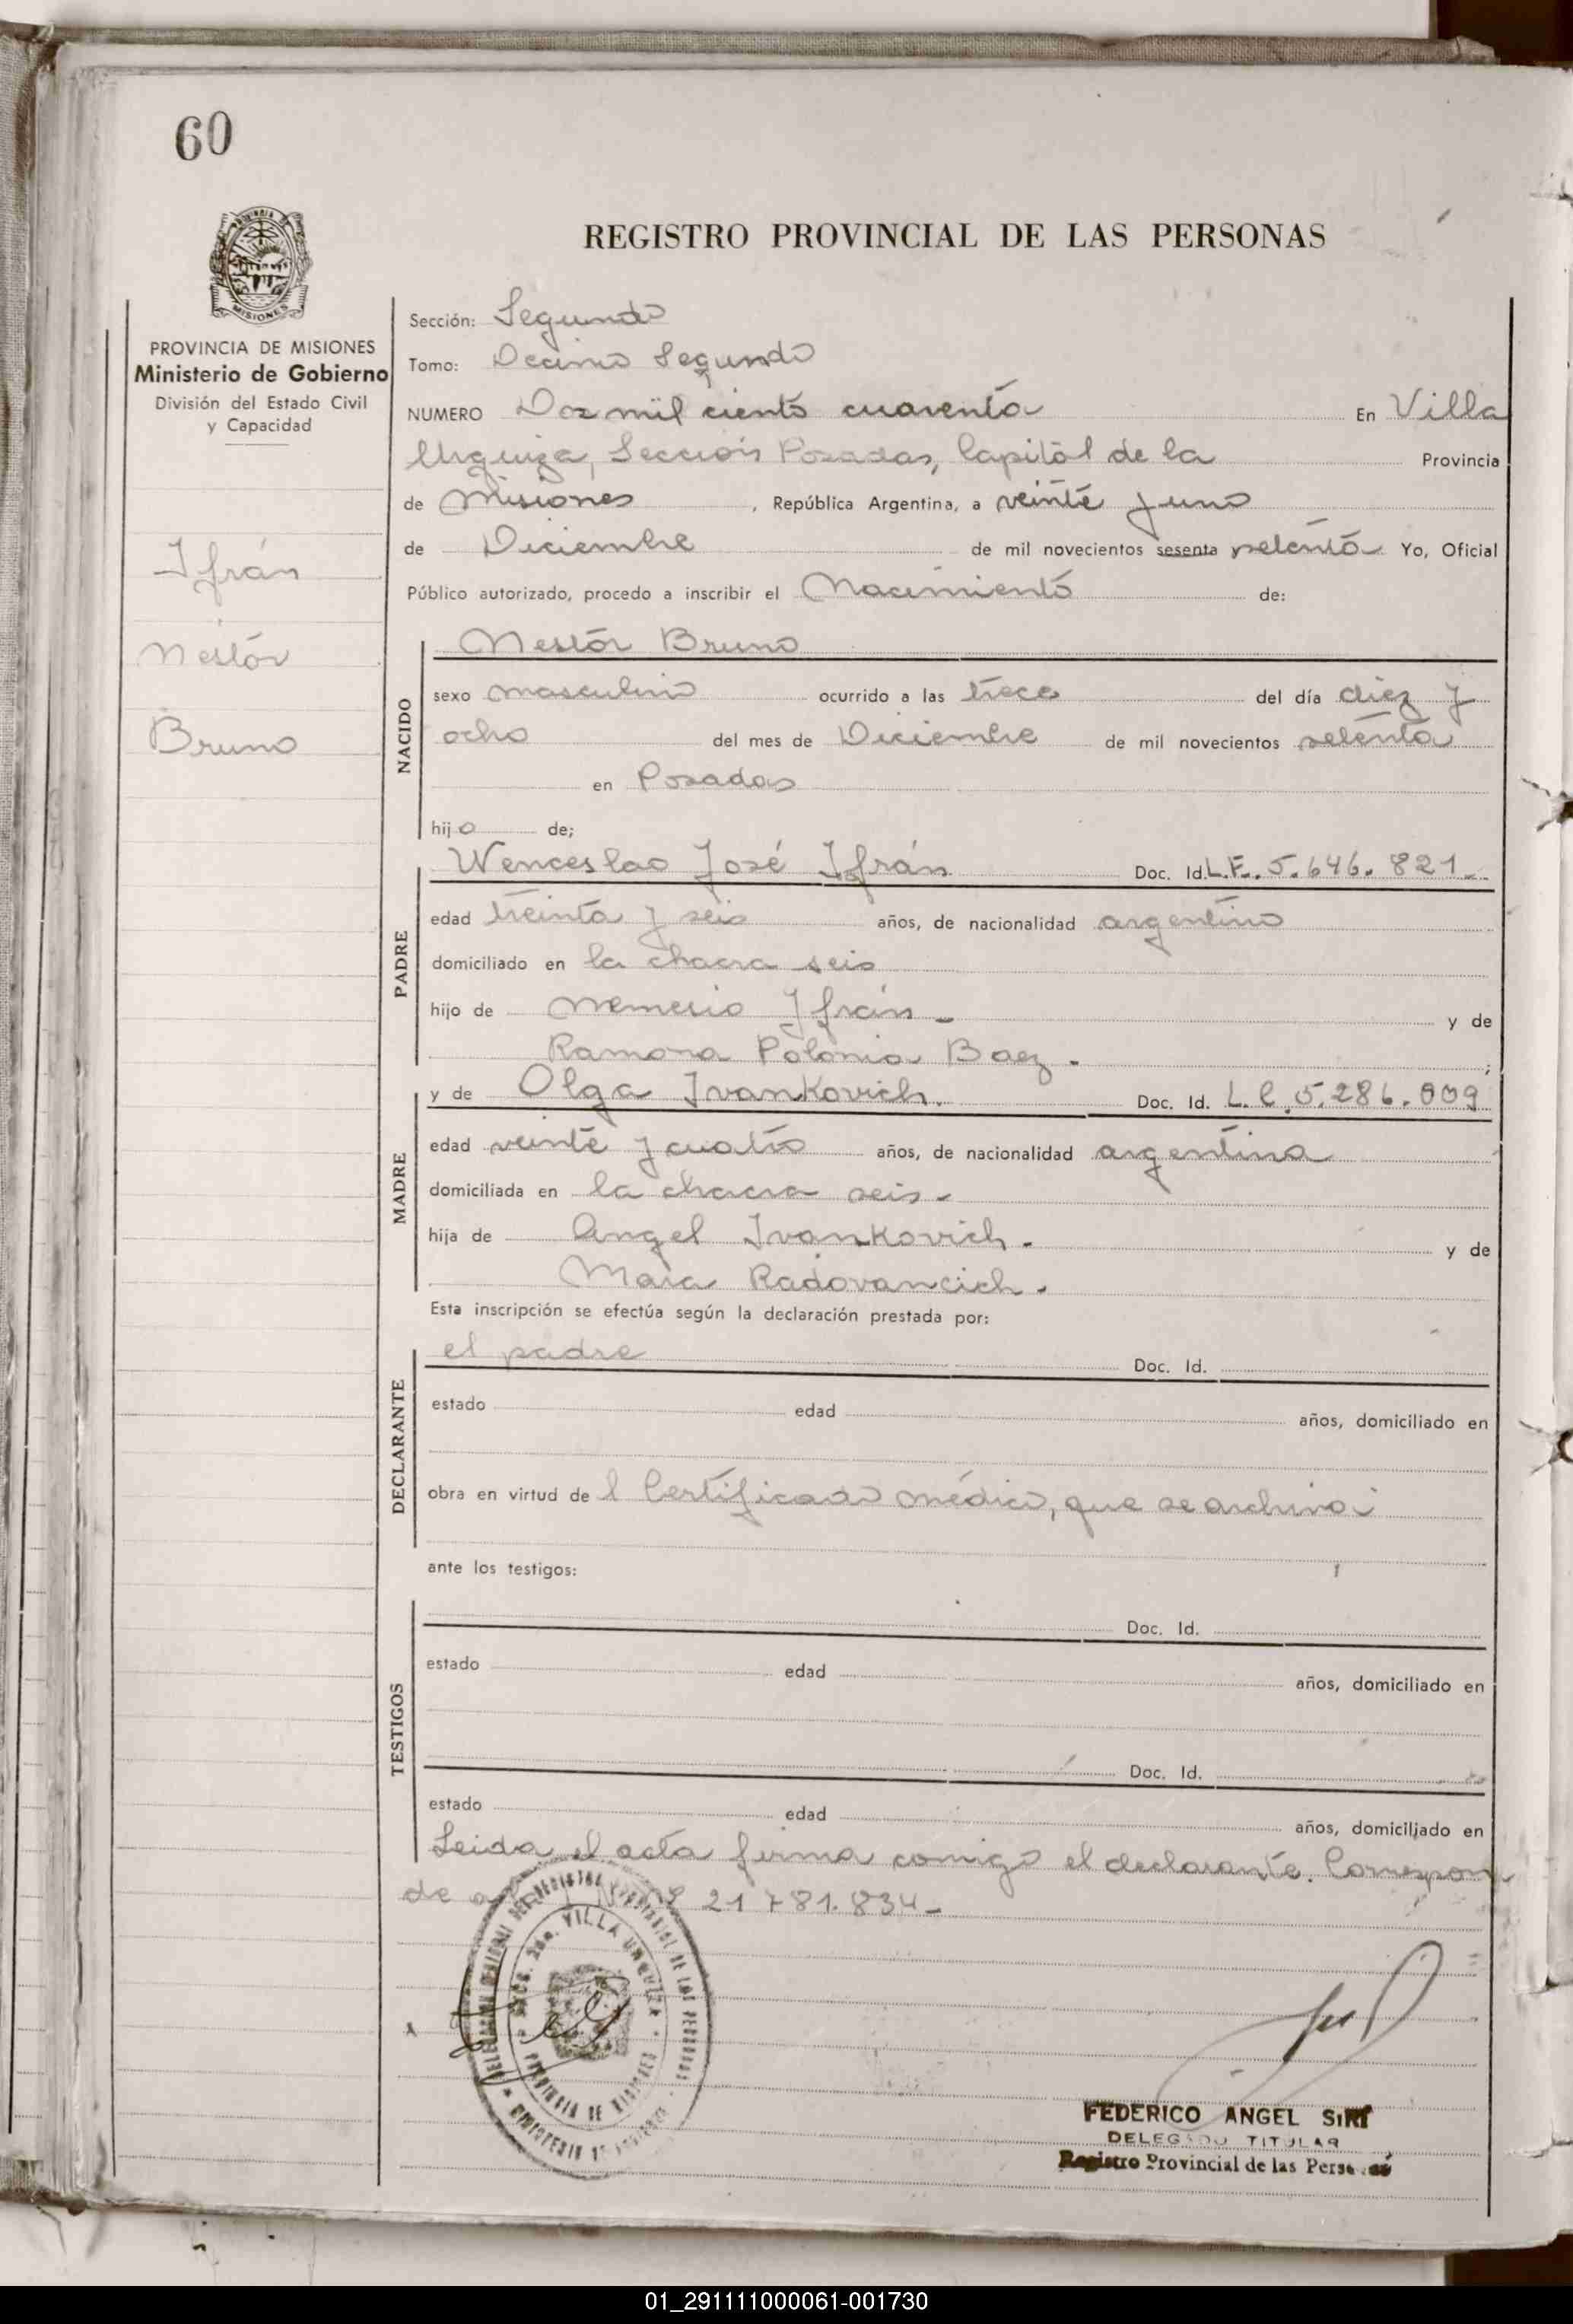 60
REGISTRO PROVINCIAL DE LAS PERSONAS
MISIONES
PROVINCIA DE MISIONES
Ministerio de Gobierno
División del Estado Civil
y Capacidad
Ifrán
Nestór
Bruno
Sección: Segundo
Tomo: Decimo Segundo
NUMERO Dos mil ciento cuarenta En Villa
Urquiza, Sección Posadas, Capital de la Provincia
de Misiones, República Argentina, a veinte y uno
de Diciembre de mil novecientos sesenta setenta Yo, Oficial
Público autorizado, procedo a inscribir el Nacimiento de:
NACIDO
Nestór Bruno
sexo masculino ocurrido a las trece del día diez y
ocho del mes de Diciembre de mil novecientos setenta
en Posadas
hijo de;
PADRE
Wenceslao José Ifrán Doc. Id. L.E. 5.646.821.-
edad treinta y seis años, de nacionalidad argentino
domiciliado en la chacra seis
hijo de Nemesio Ifrán - y de
Ramona Polonia Baez - ;
MADRE
y de Olga Ivankovich. Doc. Id. L.C. 5.286.009
edad veinte y cuatro años, de nacionalidad argentina
domiciliada en la chacra seis.-
hija de Angel Ivankovich. y de
Maria Radovancich.
Esta inscripción se efectúa según la declaración prestada por:
DECLARANTE
el padre Doc. Id.
estado edad años, domiciliado en
obra en virtud del Certificado médico, que se archiva
ante los testigos:
TESTIGOS
Doc. Id.
estado edad años, domiciliado en
Doc. Id.
estado edad años, domiciliado en
Leida el acta firma comigo el declarante. Correspon
de 21 781.834-
VILLA URQUIZA
PROVINCIA DE MISIONES
FEDERICO ANGEL SIRI
DELEGADO TITULAR
Registro Provincial de las Personas
01_291111000061-001730